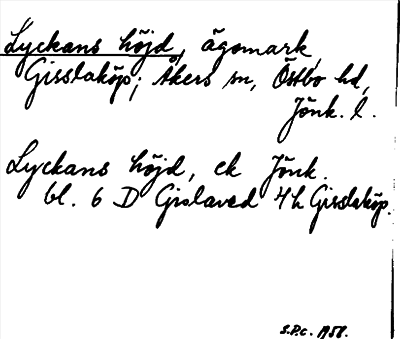 Lyckans höjd, ägomark,
Gisslaköp; Åkers sn, Östbo hd,
Jönk. l.
Lyckans höjd, ek Jönk.
bl. 6 D Gislaved 4h Gisslaköp.
S.P.C. 1958.